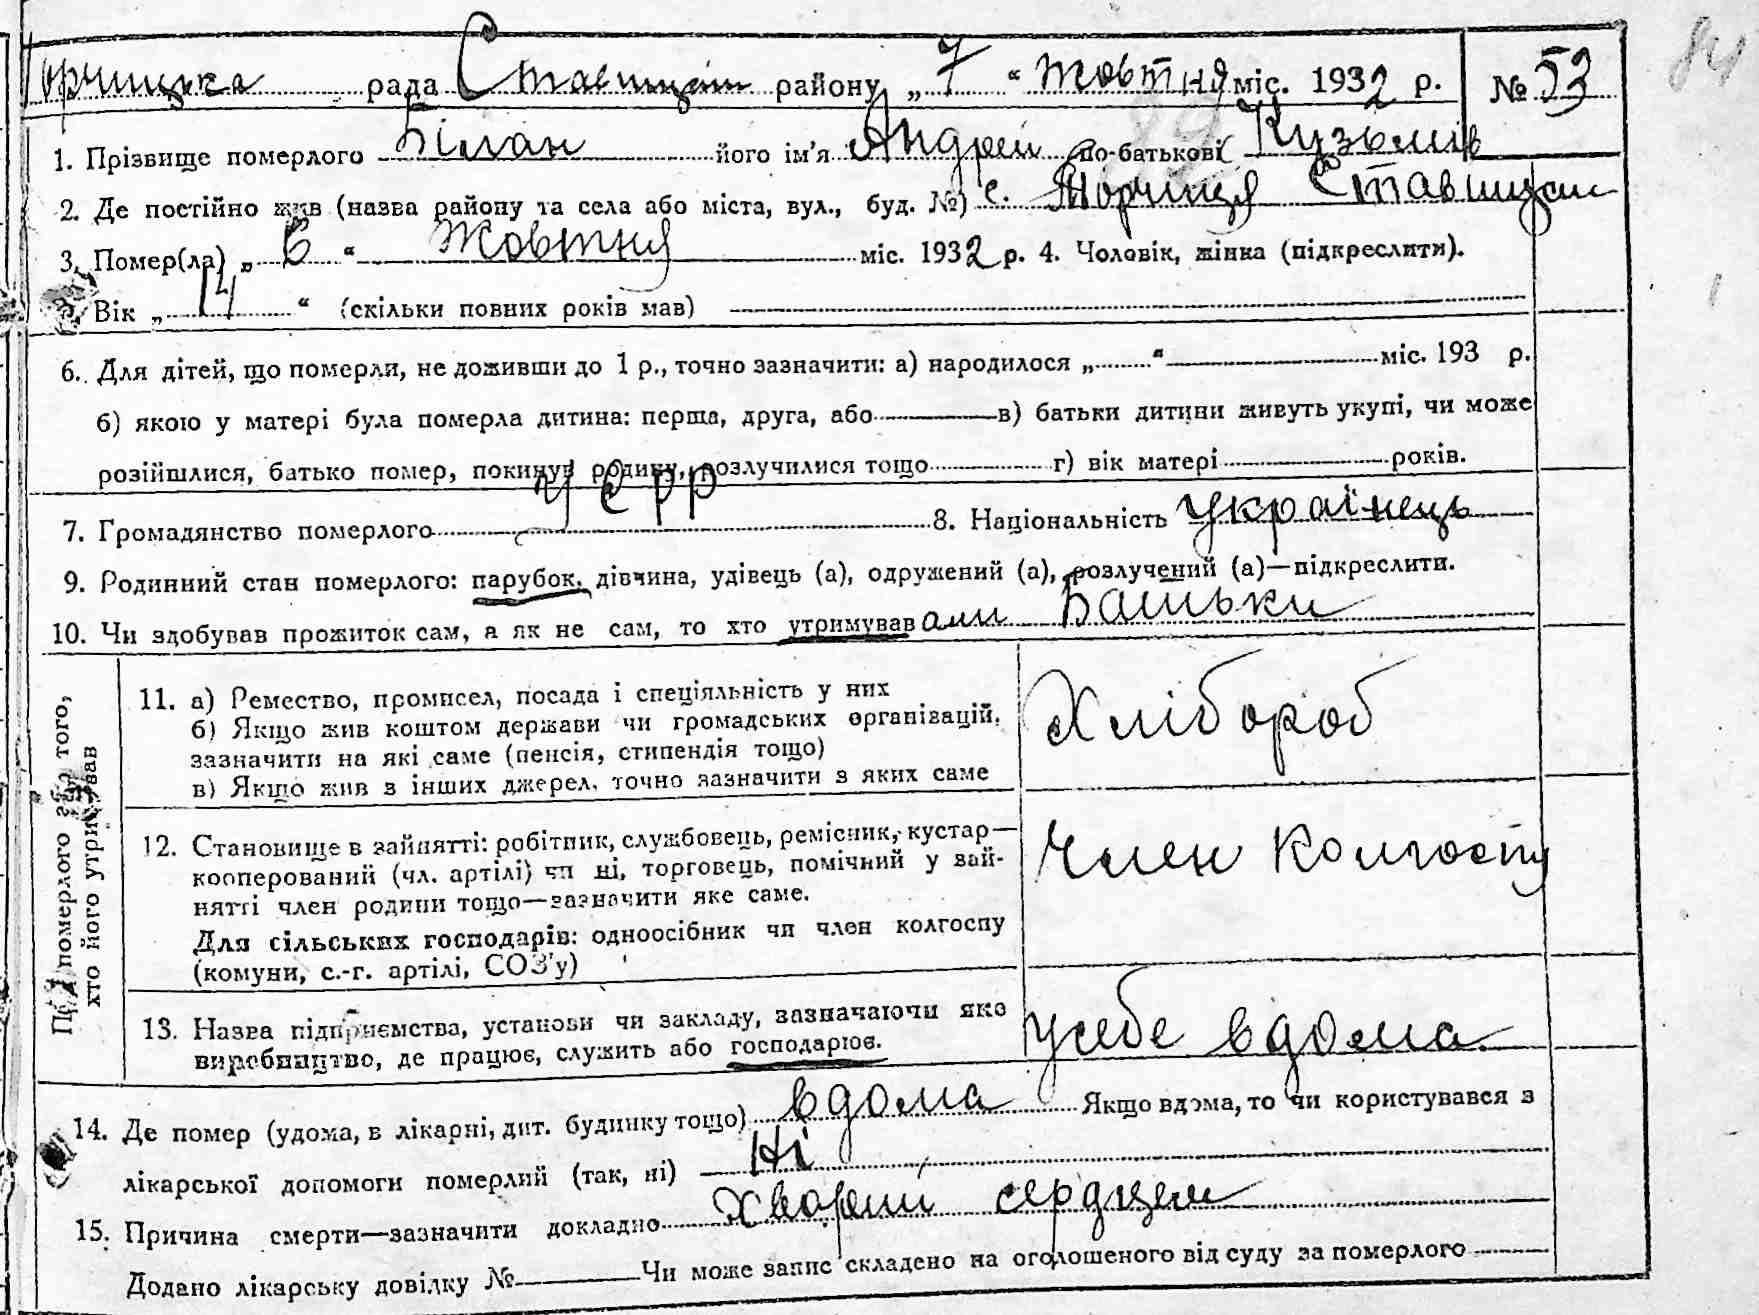 Торчицька рада Ставищан району „7“ жовтня міс. 1932 р. № 53
1. Прізвище померлого Білан його ім'я Андрей по-батькові Кузьмів
2. Де постійно жив (назва району та села або міста, вул., буд. №) с. Торчиця Ставищан
3. Помер(ла) „6“ жовтня міс. 1932 р. 4. Чоловік, жінка (підкреслити).
5. Вік „14“ (скільки повних років мав)
6. Для дітей, що померли, не доживши до 1 р., точно зазначити: а) народилося „ “ міс. 193 р.
б) якою у матері була померла дитина: перша, друга, або в) батьки дитини живуть укупі, чи може
розійшлися, батько помер, покинув родину, розлучилися тощо г) вік матері років.
7. Громадянство померлого УСРР 8. Національність Українець
9. Родинний стан померлого: парубок, дівчина, удівець (а), одружений (а), розлучений (а)—підкреслити.
10. Чи здобував прожиток сам, а як не сам, то хто утримував али Батьки
Про померлого або того,
хто його утримував
11. а) Ремество, промисел, посада і спеціяльність у них
б) Якщо жив коштом держави чи громадських організацій,
зазначити на які саме (пенсія, стипендія тощо)
в) Якщо жив з інших джерел, точно зазначити з яких саме
Хлібороб
12. Становище в зайнятті: робітник, службовець, ремісник, кустар—
кооперований (чл. артілі) чи ні, торговець, помічний у зай-
нятті член родини тощо—зазначити яке саме.
Для сільських господарів: одноосібник чи член колгоспу
(комуни, с.-г. артілі, СОЗ'у)
Член Колгоспу
13. Назва підприємства, установи чи закладу, зазначаючи яке
виробництво, де працює, служить або господарює.
у себе вдома
14. Де помер (удома, в лікарні, дит. будинку тощо) вдома Якщо вдома, то чи користувався з
лікарської допомоги померлий (так, ні) Ні
15. Причина смерти—зазначити докладно хворий сердцем
Додано лікарську довідку № Чи може запис складено на оголошеного від суду за померлого